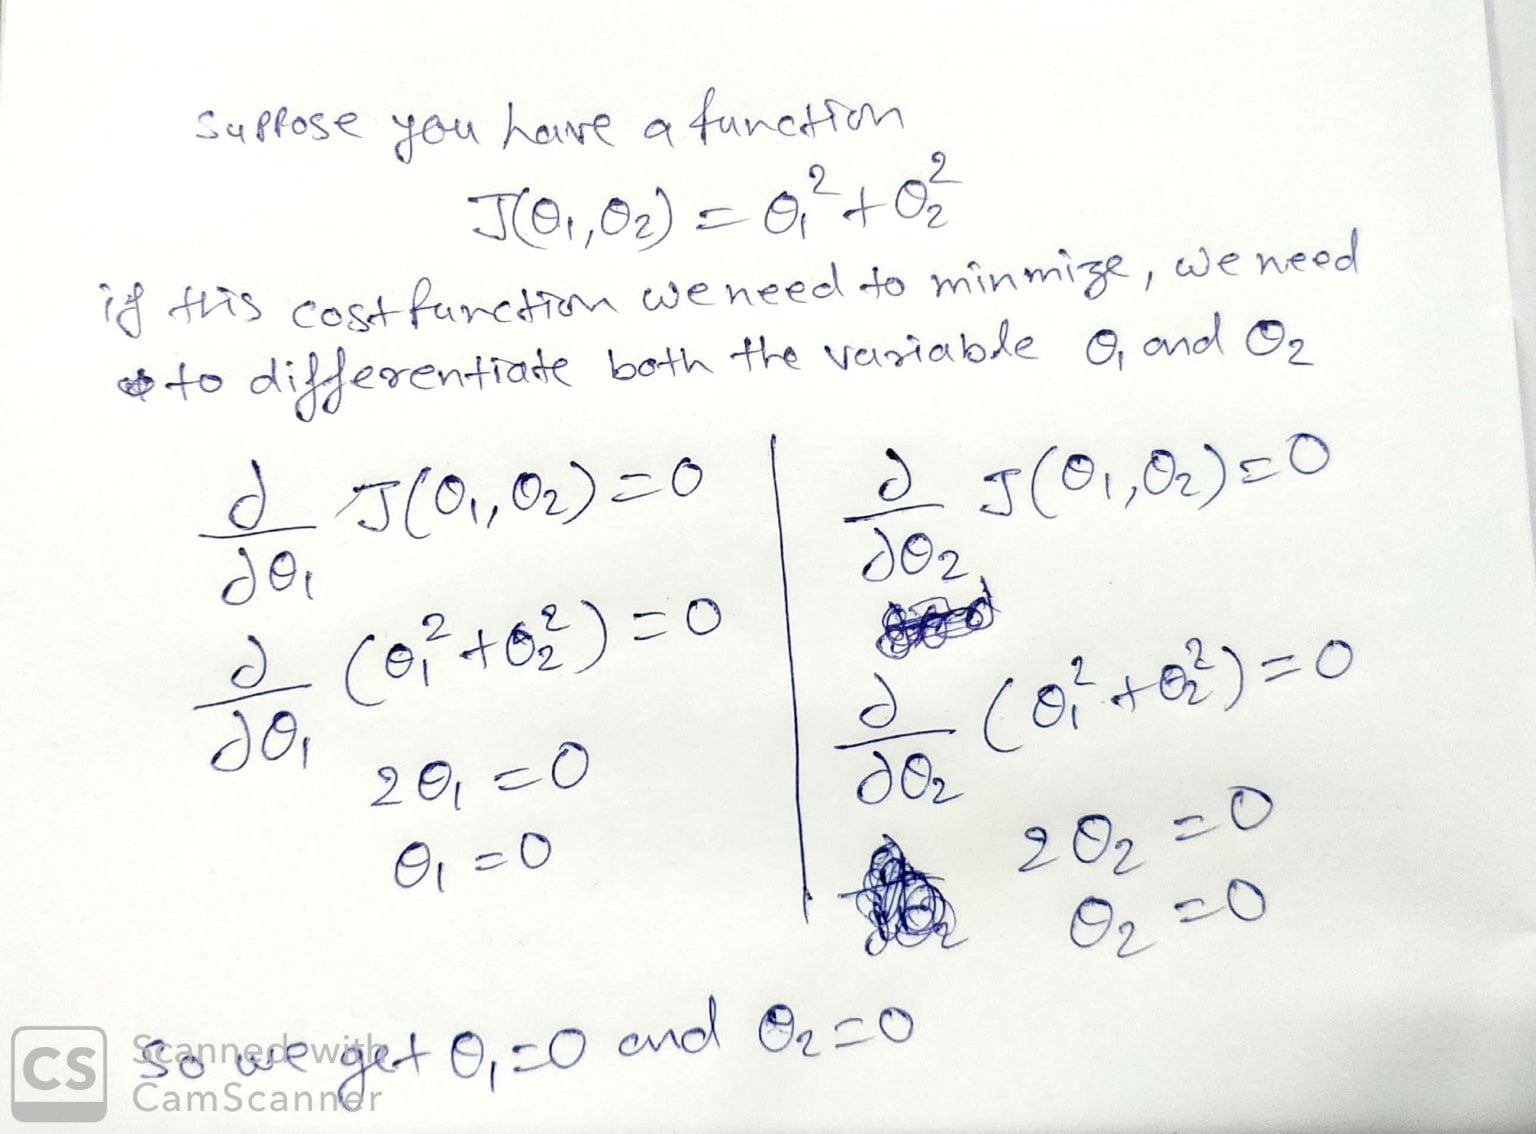 Suppose you have a function
J(θ₁,θ₂) = θ₁² + θ₂²
if this cost function we need to minmize, we need
to differentiate both the variable θ₁ and θ₂
∂/∂θ₁ J(θ₁,θ₂) = 0
∂/∂θ₁ (θ₁² + θ₂²) = 0
2θ₁ = 0
θ₁ = 0
∂/∂θ₂ J(θ₁,θ₂) = 0
∂/∂θ₂ (θ₁² + θ₂²) = 0
2θ₂ = 0
θ₂ = 0
So we get θ₁ = 0 and θ₂ = 0
CS Scanned with
CamScanner